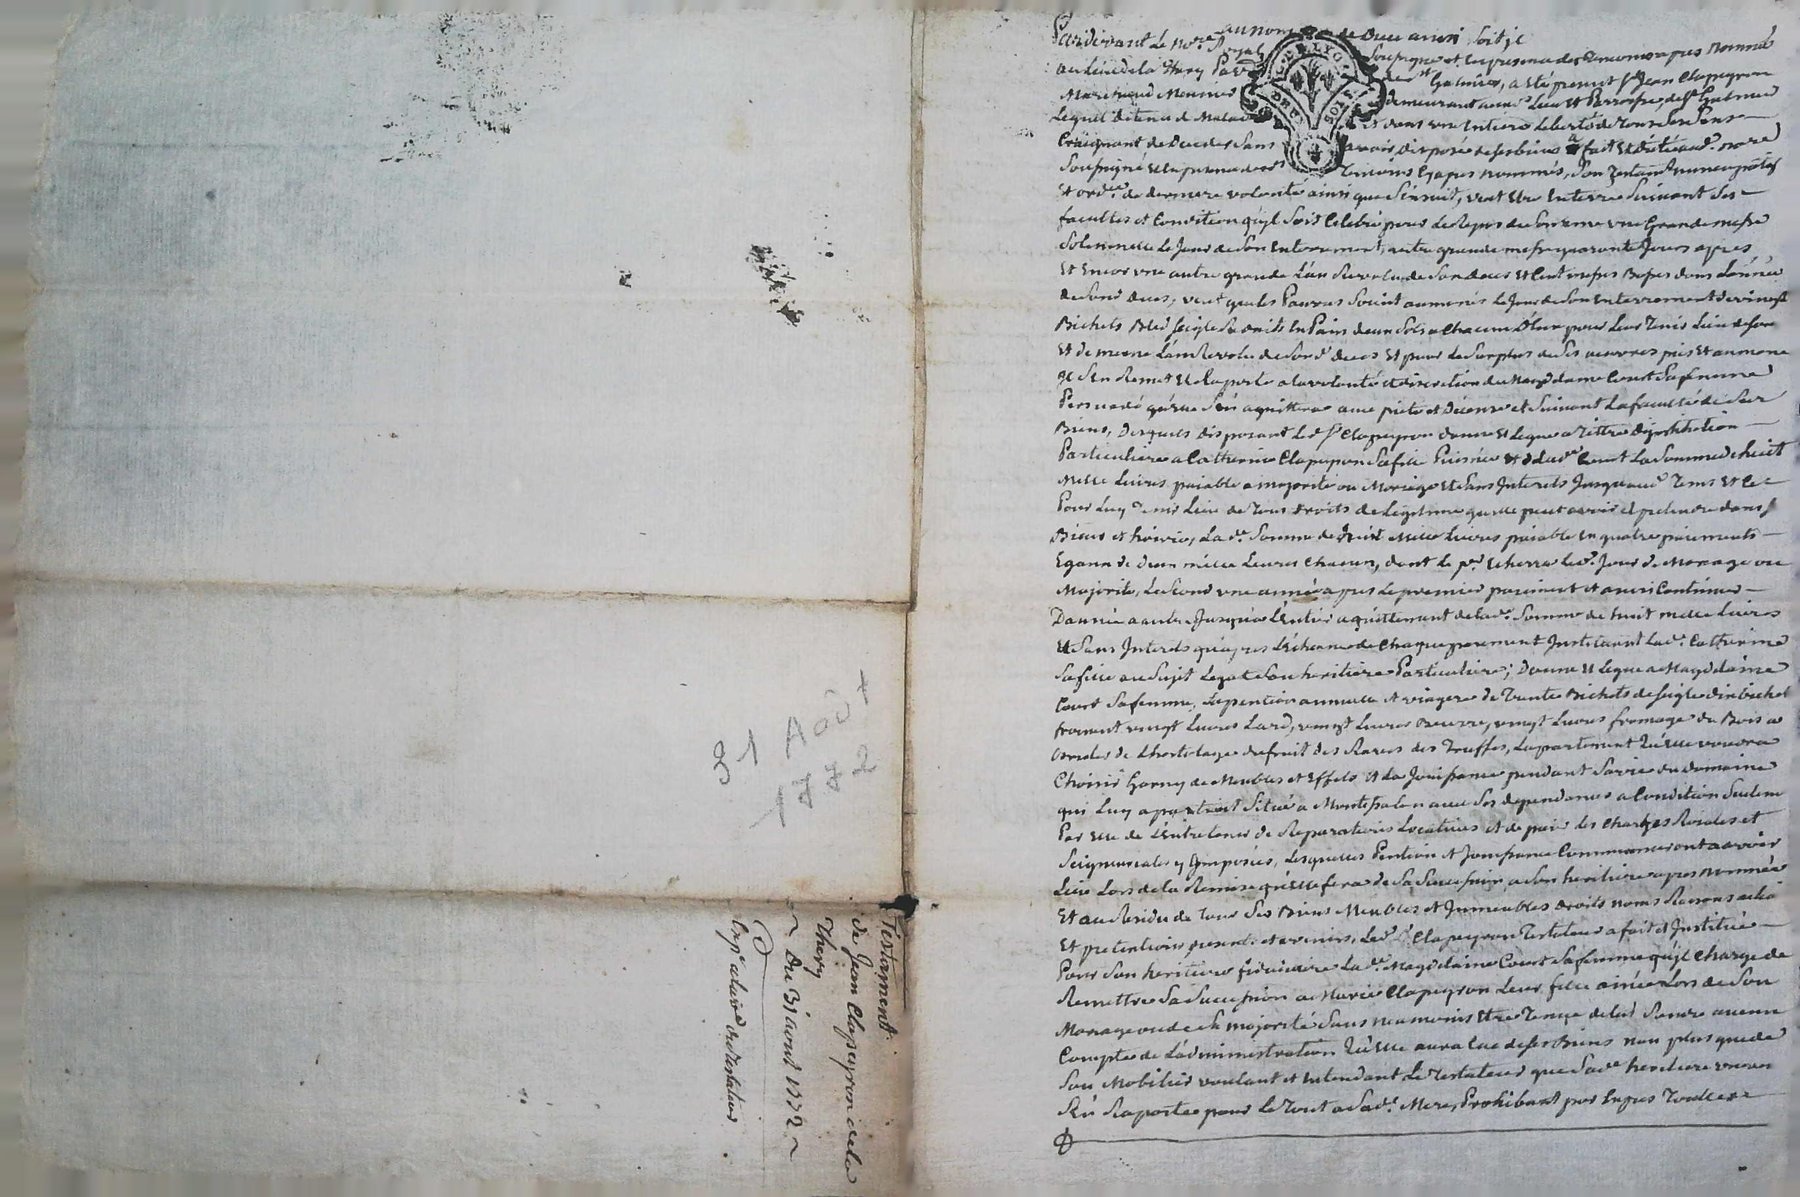 31 Août
1772
Testament
de Jean Clapeyron de la
Thery
Du 31 aout 1772
au nom de Dieu ainsi soit il
Pardevant le no.re Royal soussigné et en presence des temoins cy apres nommés
au lieu de la Thery par.sse de St Galmier, a été present Sr Jean Clapeyron
Marchand demeurant aud. lieu et Parroisse de St Galmier
Lequel detenu de Maladie et dans une entiere liberté de tous ses sens
Craignant de deceder sans avoir disposé de ses biens a fait et dicté aud. no.re
Soussigné et en presence des Temoins cy apres nommés, son Testamt nuncupatif
et ord.ce de derniere volonté ainsi que s'ensuit, veut etre enterré suivant ses
facultes et Condition qu'yl soit Celebré pour le repos de son ame une Grande messe
Solemnelle le Jour de son enterrement, autre grande messe quarante Jours apres
et encor une autre grande l'an revolu de son deces et Cent messes basses dans l'année
de sond. deces, veut que les Pauvres soient aumonés le Jour de son enterrement de vingt
Bichets bled seigle en Pain
et de meme l'an revolu de sond. deces et pour le surplus de ses oeuvres pies et aumone
il s'en Remet et raporte a la volonté et discretion de Magdelaine Court sa femme
Persuadé qu'elle s'en aquittera avec pieté et Decence et suivant la faculté de ses
Biens, desquels disposant led. Sr Clapeyron donne et legue a Tittre d'institution
Particuliere a Catherine Clapeyron sa fille Puisnée et de lad.e Court la Somme de huit
Mille Livres paiable a majorité ou Mariage et sans Interets Jusqu'aud. Tems et ce
Pour Luy Tenir Lieu de Tous droits de Legitime qu'elle peut avoir et pretendre dans ses
Biens et hoirie, La d.e Somme de huit Mille Livres paiable en quatre paiements
Egaux de deux mille Livres chacun, dont le p.er echerra led. Jour de Mariage ou
Majorité, le second une année apres le premier paiement et ainsi Continuer
D'année a autre Jusqu'a l'entier aquittement de lad.e Somme de huit mille Livres
et sans Interets qu'apres l'écheance de Chaque paiement Instituant lad. Catherine
sa fille au sujet legat son heritiere Particuliere; Donne et legue a Magdelaine
Court sa femme, la pention annuelle et viagere de Trente Bichets de seigle dix bichet
froment vingt Livres Lard, vingt Livres Beurre, vingt Livres fromage du Bois a
de l'hortolage du fruit des Raves des Truffes, l'apartement qu'elle voudra
Choisir Garny de Meubles et Effets et la Jouissance pendant sa vie du domaine
qui Luy apartient situé a avec ses dependances a Condition
Par elle de l'entretenir de Reparations Locatives et de paier les Charges Roiales et
Seigneuriales y Imposées, Lesquelles Pention et Jouissance Commenceront a avoir
Lieu Lors de la Remise qu'elle fera de sa succession a son heritiere apres nommée
Et au Residu de Tous ses Biens Meubles et Immeubles droits noms Raisons actio
Et pretentions presents et avenirs, Led. Sr Clapeyron Testateur a fait et Institué
Pour son heritiere fiduciaire La d.e Magdelaine Court sa femme qu'yl Charge de
Remettre sa succession a Marie Clapeyron Leur fille ainée Lors de son
Mariage ou de sa majorité sans neanmoins etre Tenue de lui Rendre aucun
Compte de l'administration qu'elle aura eue de ses Biens non plus que de
Son Mobilier voulant et entendant le Testateur que sa d.e heritiere
s'en Raporte pour le tout a sa d. Mere, Prohibant par expres Toute